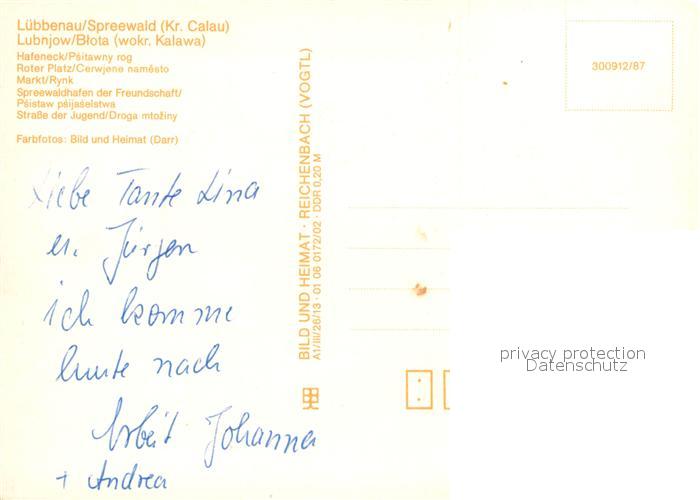 Lübbenau/Spreewald (Kr. Calau)
Lubnjow/Błota (wokr. Kalawa)
Hafeneck/Pśitawny rog
Roter Platz/Cerwjene naměsto
Markt/Rynk
Spreewaldhafen der Freundschaft/
Pśistaw pśijaśelstwa
Straße der Jugend/Droga młoźiny
Farbfotos: Bild und Heimat (Darr)
Liebe Tante Lina
u. Jürgen
ich komme
heute nach
Arbeit Johanna
+ Andrea
BILD UND HEIMAT · REICHENBACH (VOGTL)
A1/III/26/13 · 01 06 0172/02 · DDR 0,20 M
300912/87
privacy protection
Datenschutz